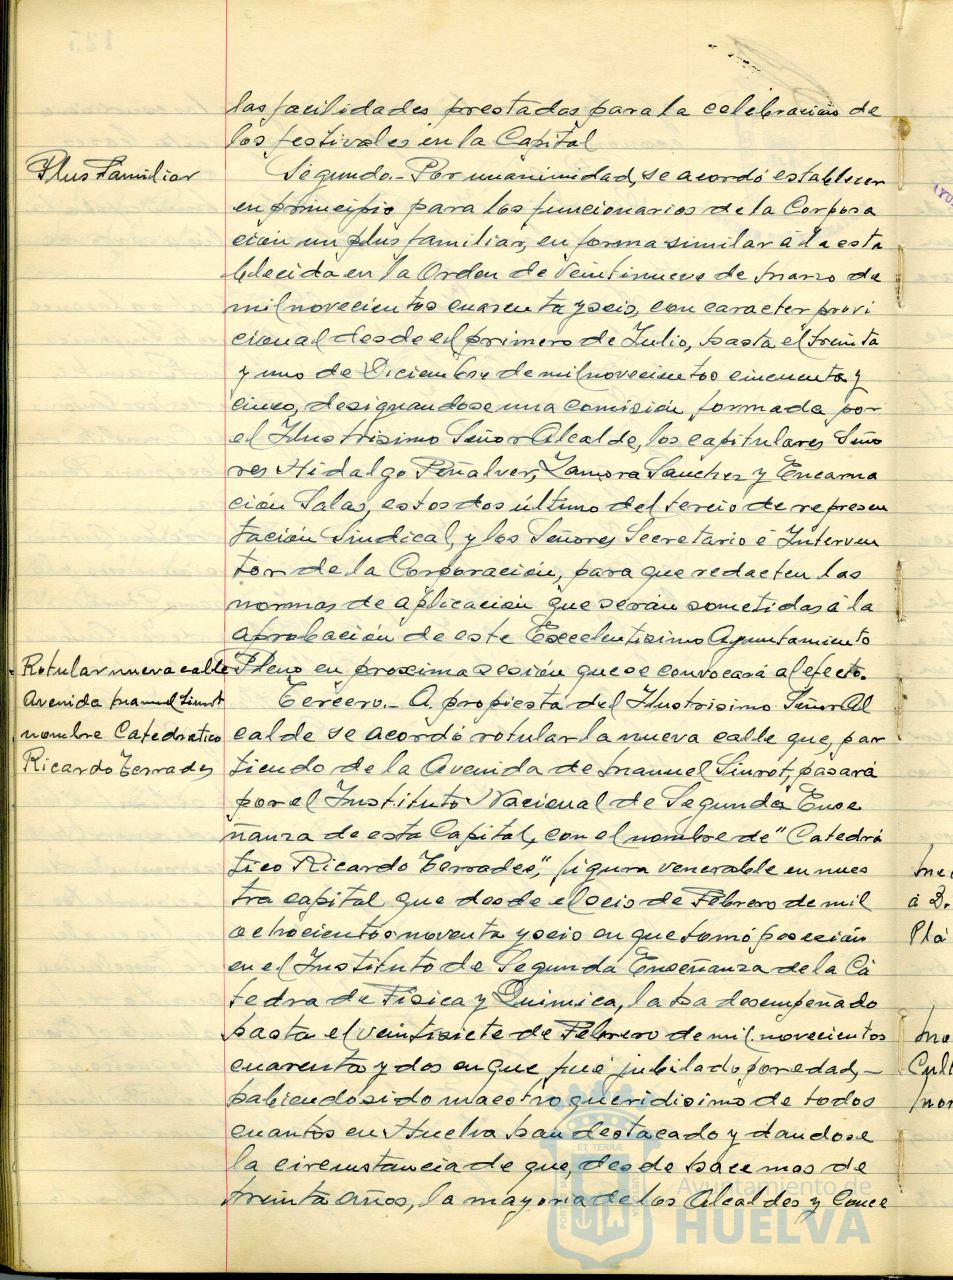 las facilidades prestadas para la celebración de
los festivales en la Capital
Plus Familiar
Segundo.- Por unanimidad, se acordó establecer
en principio para los funcionarios de la Corpora
ción un plus familiar, en forma similar á la esta
blecida en la Orden de veintinueve de marzo de
mil novecientos cuarenta y seis, con caracter provi
cional desde el primero de Julio, hasta el treinta
y uno de Diciembre de mil novecientos cincuenta y
cinco, designandose una comisión formada por
el Ilustrisimo Señor Alcalde, los capitulares Seño
res Hidalgo Peñalver, Zamora Sanchez y Encarna
ción Salas, estos dos último del tercio de represen
tación Sindical, y los Señores Secretario é Interven
tor de la Corporación, para que redacten las
normas de aplicación que serán sometidas á la
aprobación de este Excelentisimo Ayuntamiento
Pleno en proxima sesión que se convocará al efecto.
Rotular nueva calle
Avenida Manuel Siurot
nombre Catedratico
Ricardo Terrades
Tercero.- A propiesta del Ilustrisimo Señor Al
calde se acordó rotular la nueva calle que, par
tiendo de la Avenida de Manuel Siurot, pasará
por el Instituto Nacional de Segunda Ense
ñanza de esta Capital, con el nombre de "Catedrá
tico Ricardo Terrades," figura venerable en nues
tra capital que desde el seis de Febrero de mil
ochocientos noventa y seis en que tomó posesión
en el Instituto de Segunda Enseñanza de la Cá
tedra de Fisica y Quimica, la ha desempeñado
hasta el veintisiete de Febrero de mil novecientos
cuarenta y dos en que fué jubilado por edad,-
habiendo sido maestro queridisimo de todos
cuantos en Huelva han destacado y dandose
la circunstancia de que, desde hace mas de
treinta años, la mayoria de los Alcaldes y Conce
á D.
Pla
Cult
Ayuntamiento de
HUELVA